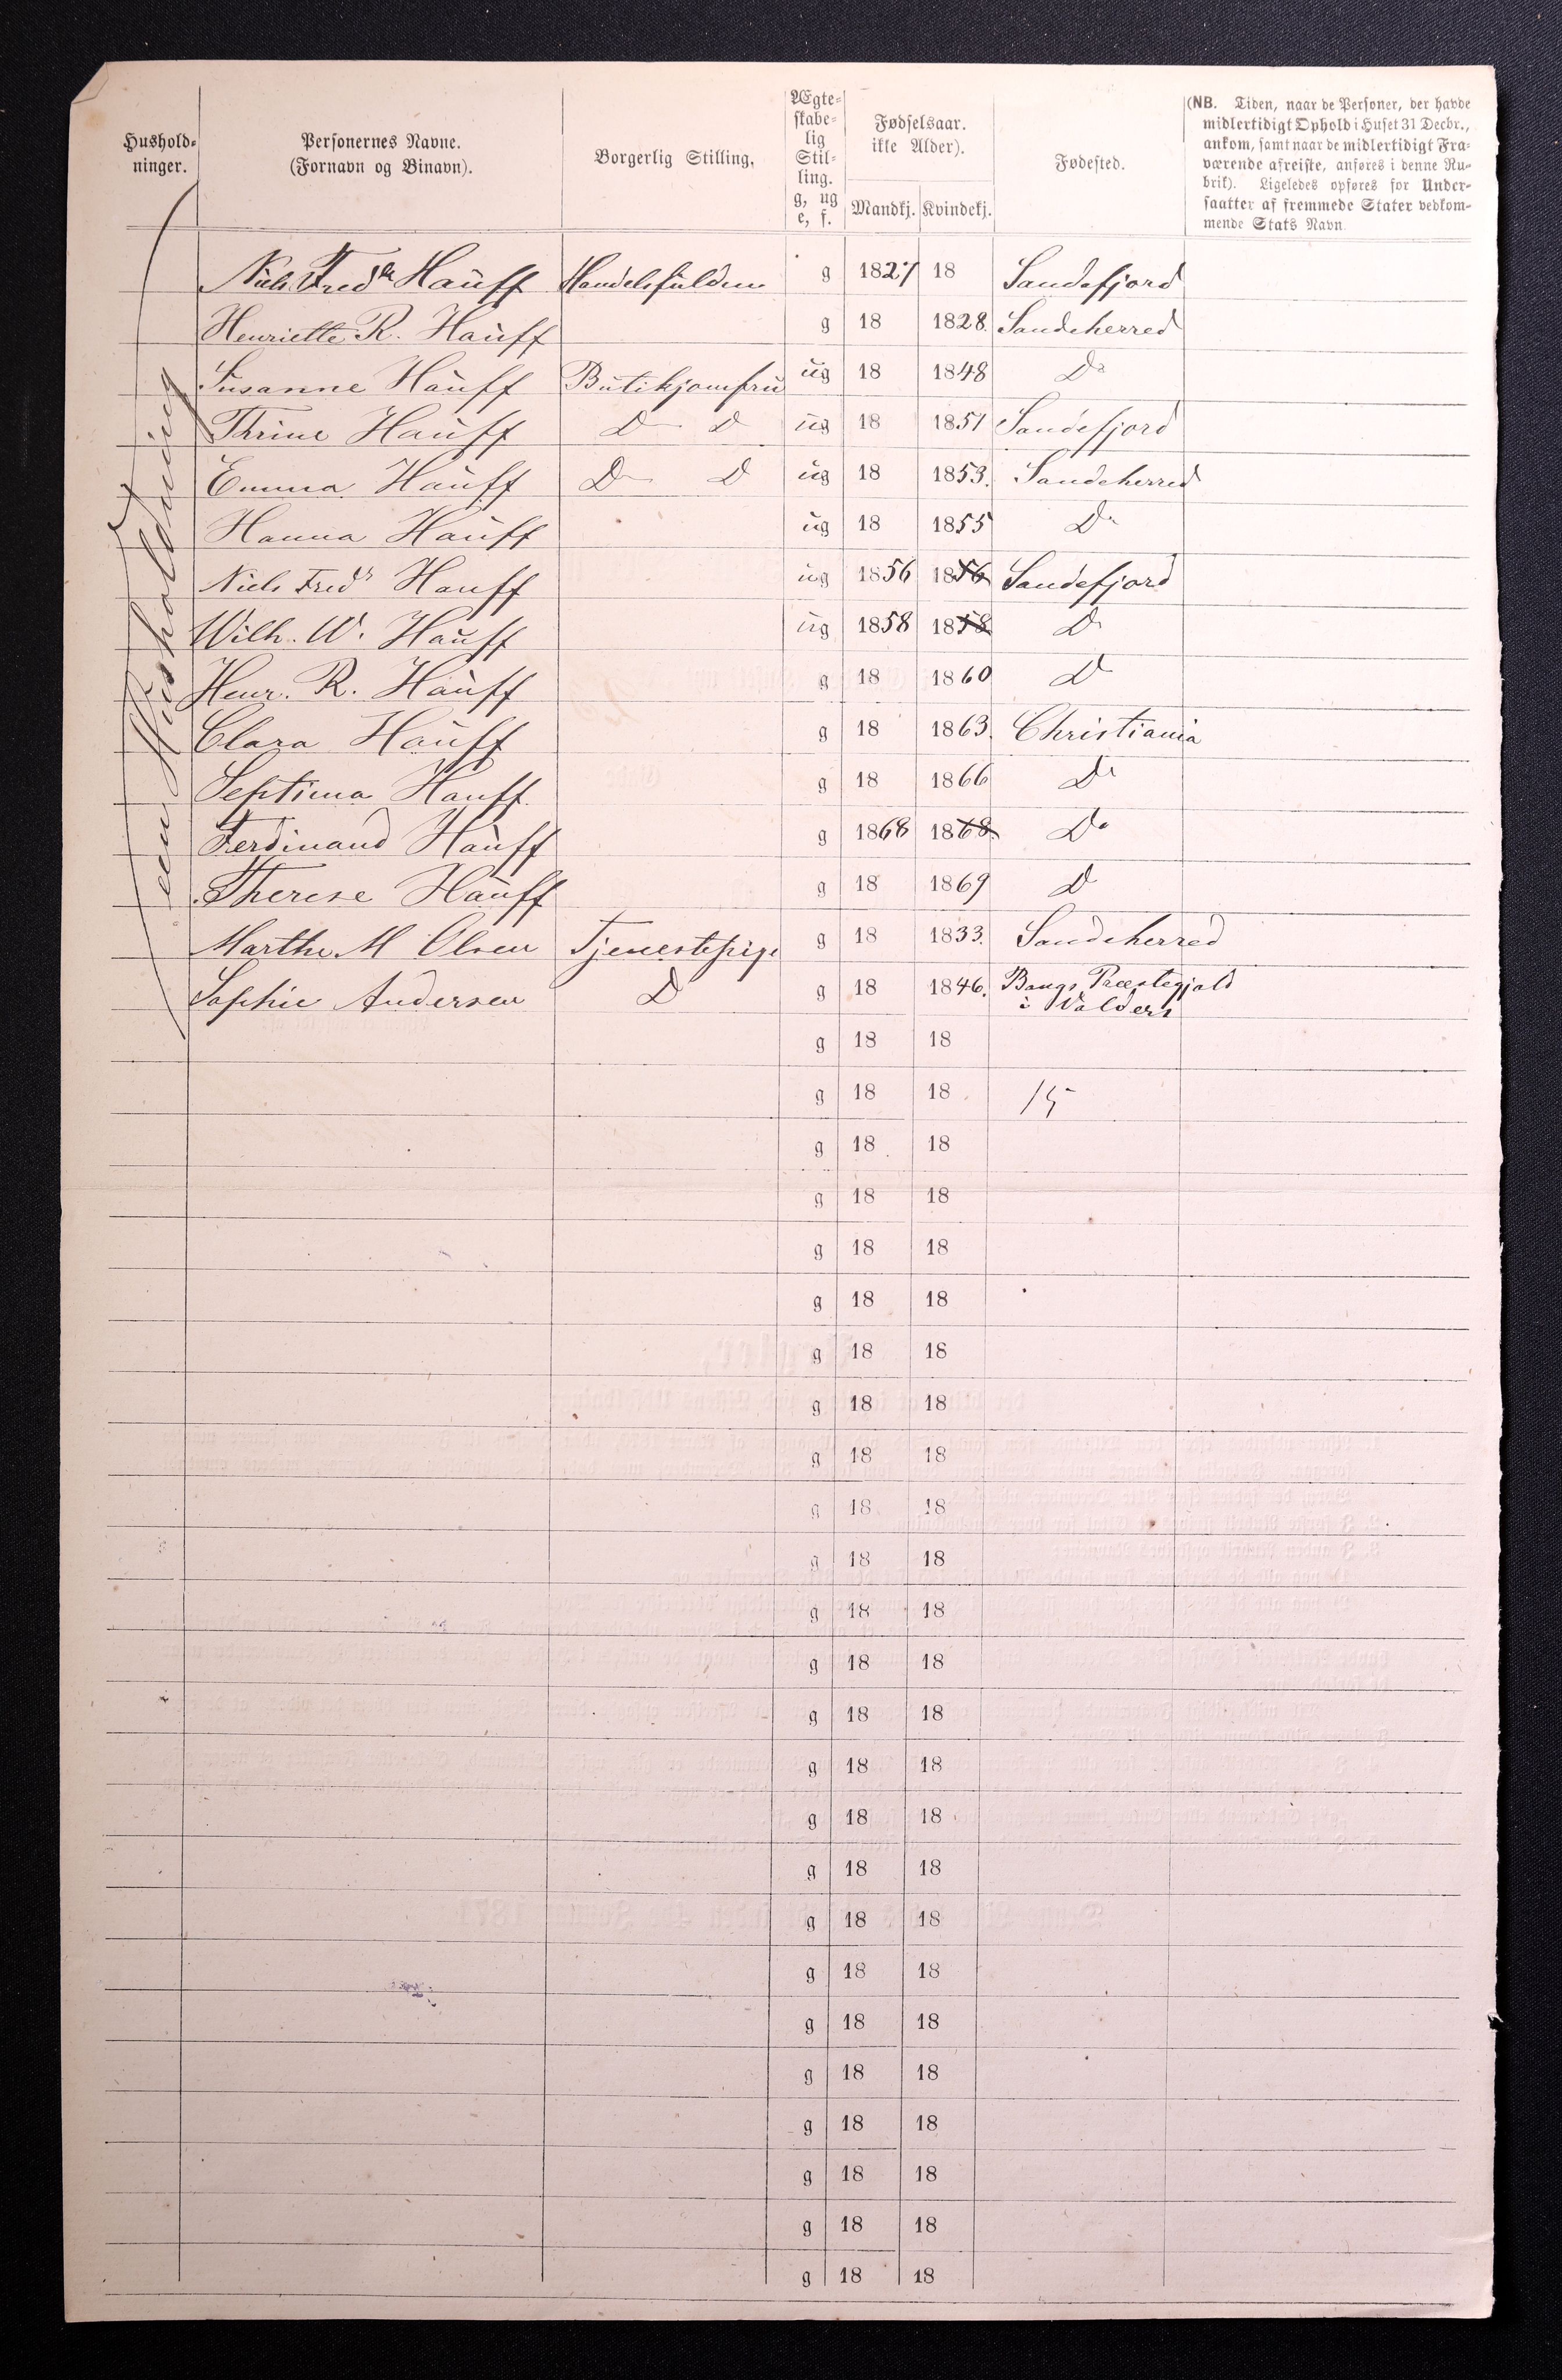 Hushold-
ninger.
Personernes Navne.
(Fornavn og Binavn).
Borgerlig Stilling.
Ægte-
skabe-
lig
Stil-
ling.
g, ug
e, f.
Fødselsaar.
ikke Alder).
Mandkj. Kvindekj.
Fødested.
(NB. Tiden, naar de Personer, der havde
midlertidigt Ophold i Huset 31 Decbr.,
ankom, samt naar de midlertidigt Fra-
værende afreiste, anføres i denne Ru-
brik). Ligeledes opføres for Under-
saatter af fremmede Stater vedkom-
mende Stats Navn.
een Husholdning
Niels Fredk Hauff Handelsfuldm g 1827 18 Sandefjord
Henriette R. Hauff g 18 1828. Sandeherred
Susanne Hauff Butikjomfru ug 18 1848 Do
Thrine Hauff D D ug 18 1851 Sandefjord
Emma Hauff D D ug 18 1853. Sandeherred
Hanna Hauff ug 18 1855 Do
Niels Fredk Hauff ug 1856 1856 Sandefjord
Wilh. W. Hauff ug 1858 1858 D
Henr. R. Hauff g 18 1860 D
Clara Hauff g 18 1863. Christiania
Septima Hauff g 18 1866 Do
Ferdinand Hauff g 1868 1868. Do
Therese Hauff g 18 1869 D
Marthe M Olsen Tjenestepige g 18 1833. Sandeherred
Sophie Andersen D g 18 1846. Bangs Præstegjald
i Valders
g 18 18
g 18 18 15
g 18 18
g 18 18
g 18 18
g 18 18
g 18 18
g 18 18
g 18 18
g 18 18
g 18 18
g 18 18
g 18 18
g 18 18
g 18 18
g 18 18
g 18 18
g 18 18
g 18 18
g 18 18
g 18 18
g 18 18
g 18 18
g 18 18
g 18 18